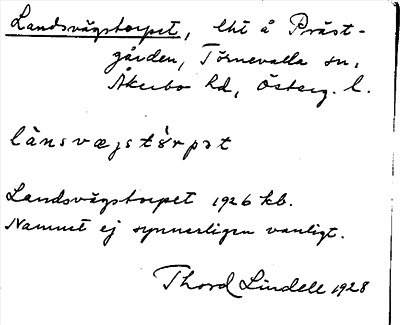 Landsvägstorpet, lht å Präst-
gården, Törnevalla sn,
Åkerbo hd, Österg. l.
lànsvægstórpət
Landsvägstorpet 1926 kb.
Namnet ej synnerligen vanligt.
Thord Lindell 1928